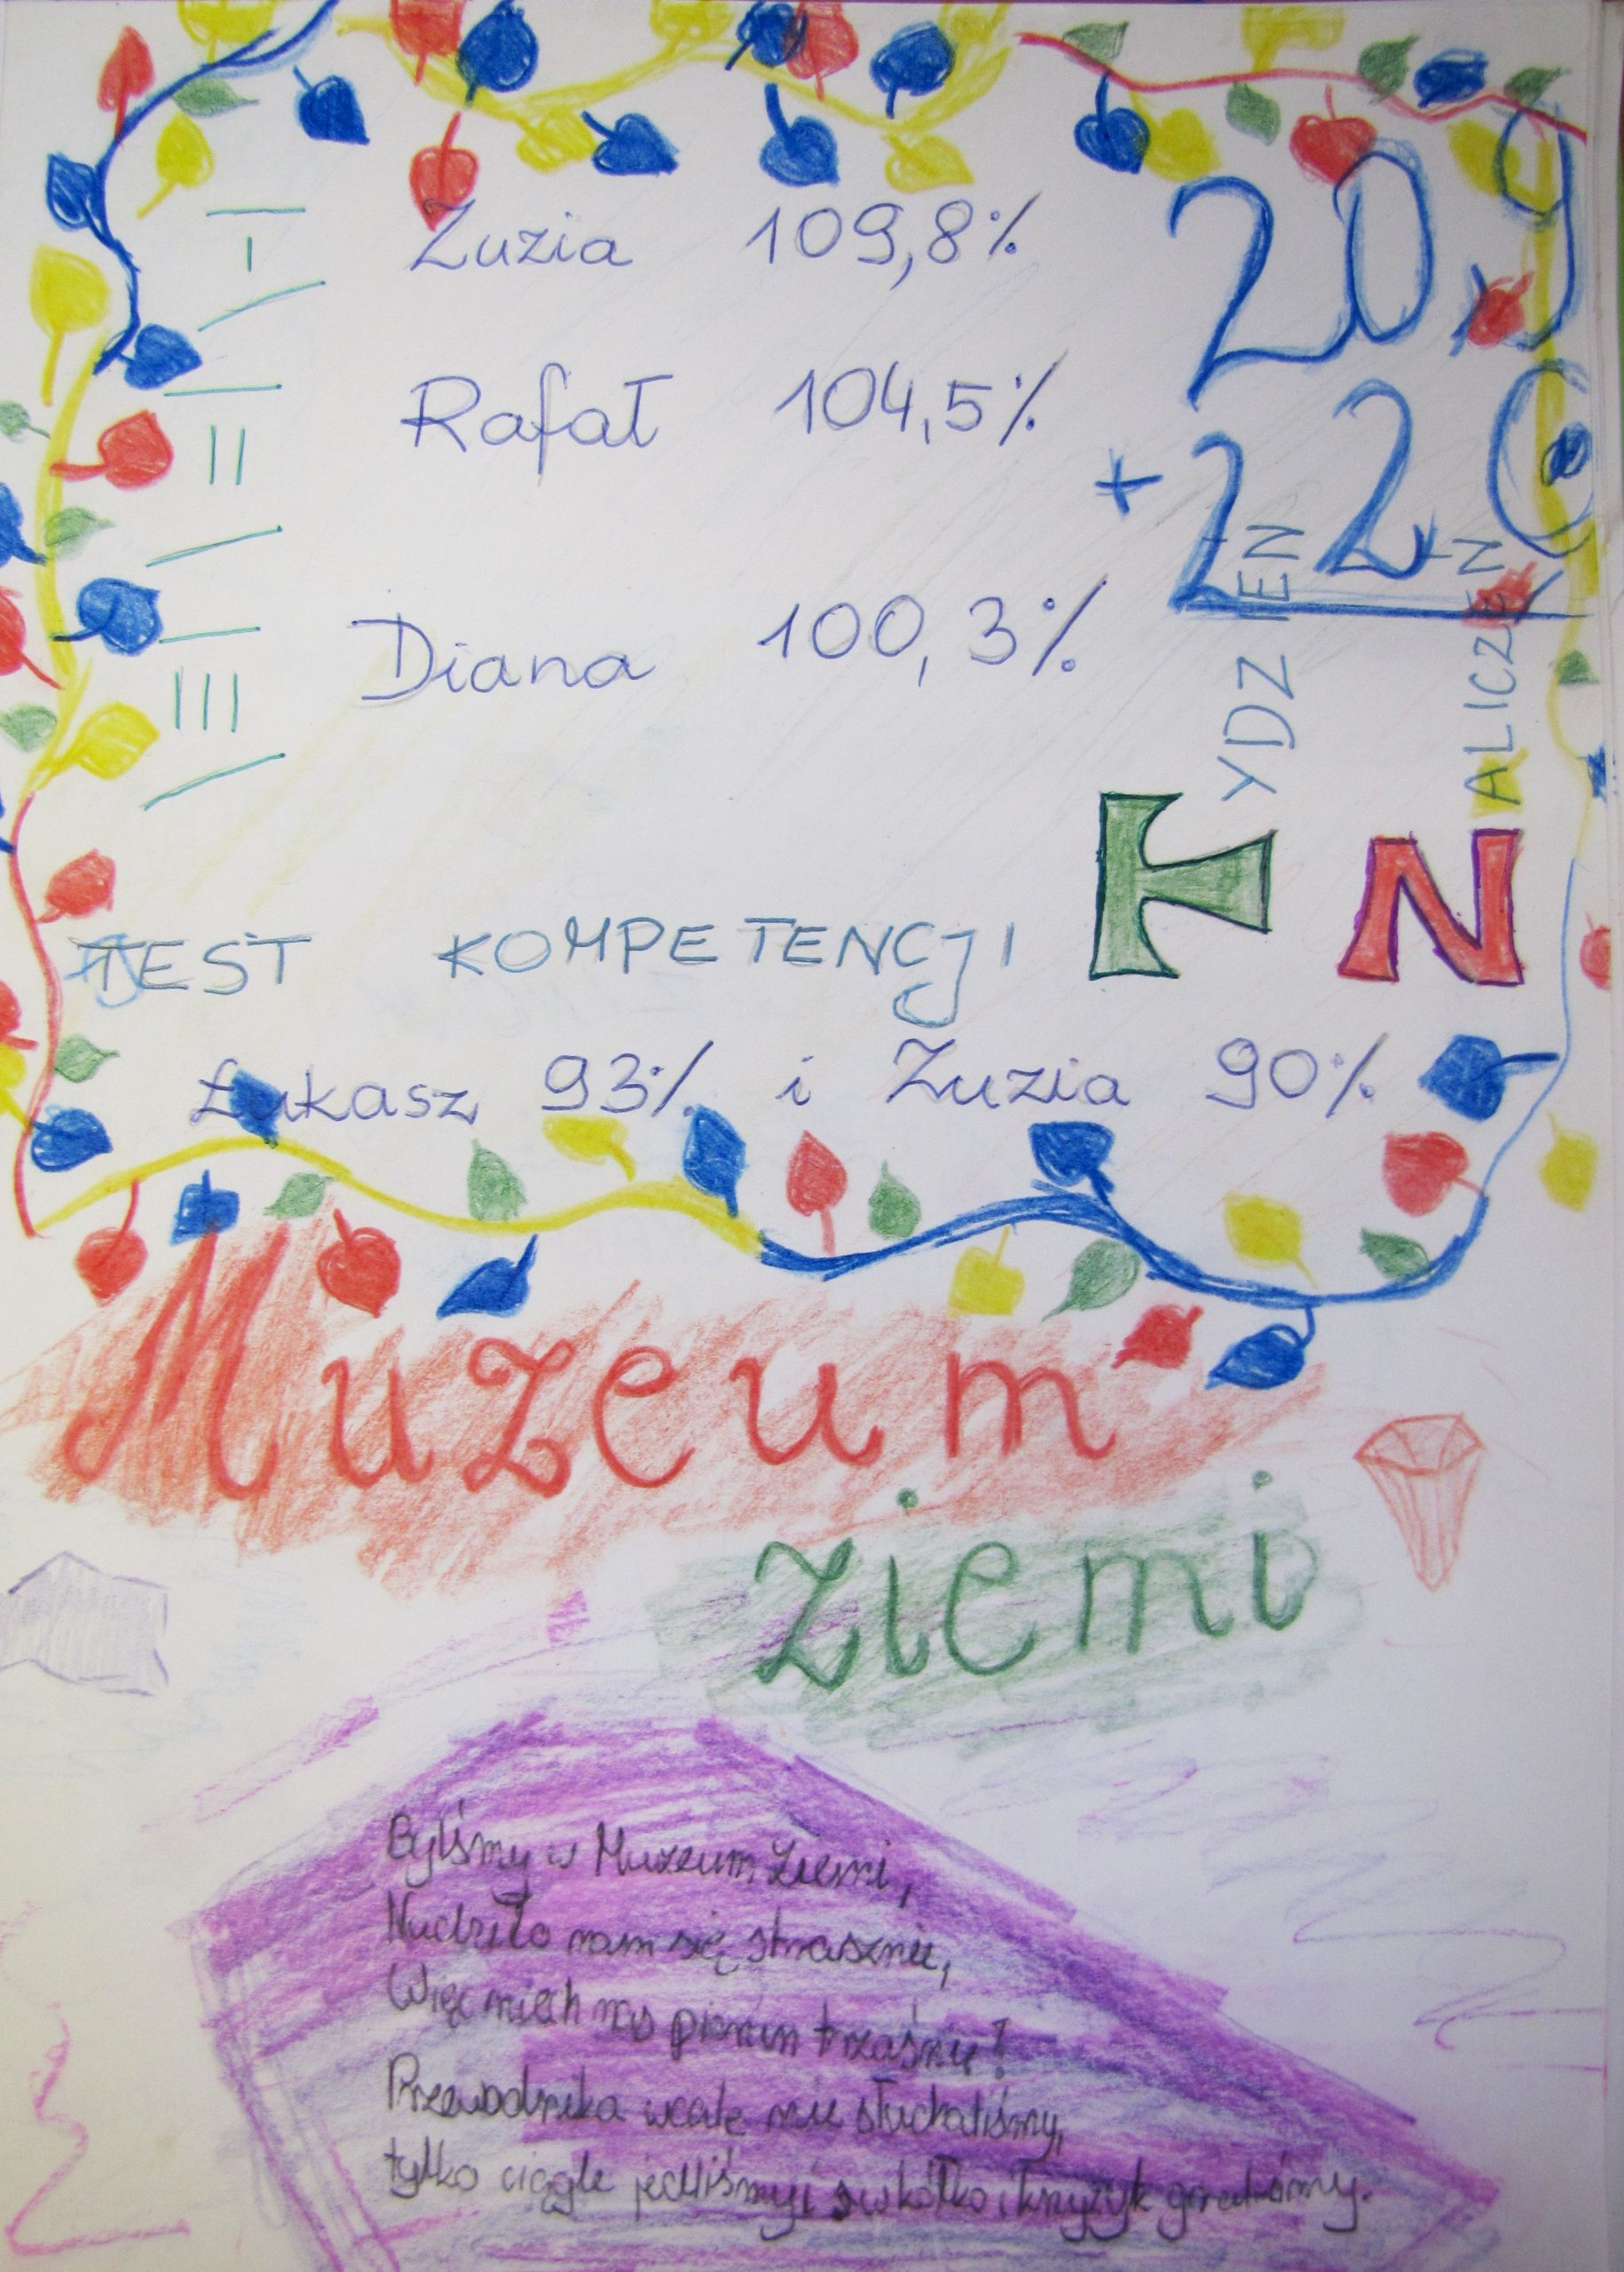 I Zuzia 109,8% 209
II Rafał 104,5% + 226
III Diana 100,3%
TYDZIEŃ
NALICZEŃ
TEST KOMPETENCJI
Łukasz 93% i Zuzia 90%
Muzeum
Ziemi
Byliśmy w Muzeum Ziemi,
Nudziło nam się strasznie,
Więc niech nas piorun trzaśnie!
Przewodnika wcale nie słuchaliśmy,
tylko ciągle jedliśmy i w kółko i krzyżyk graliśmy.